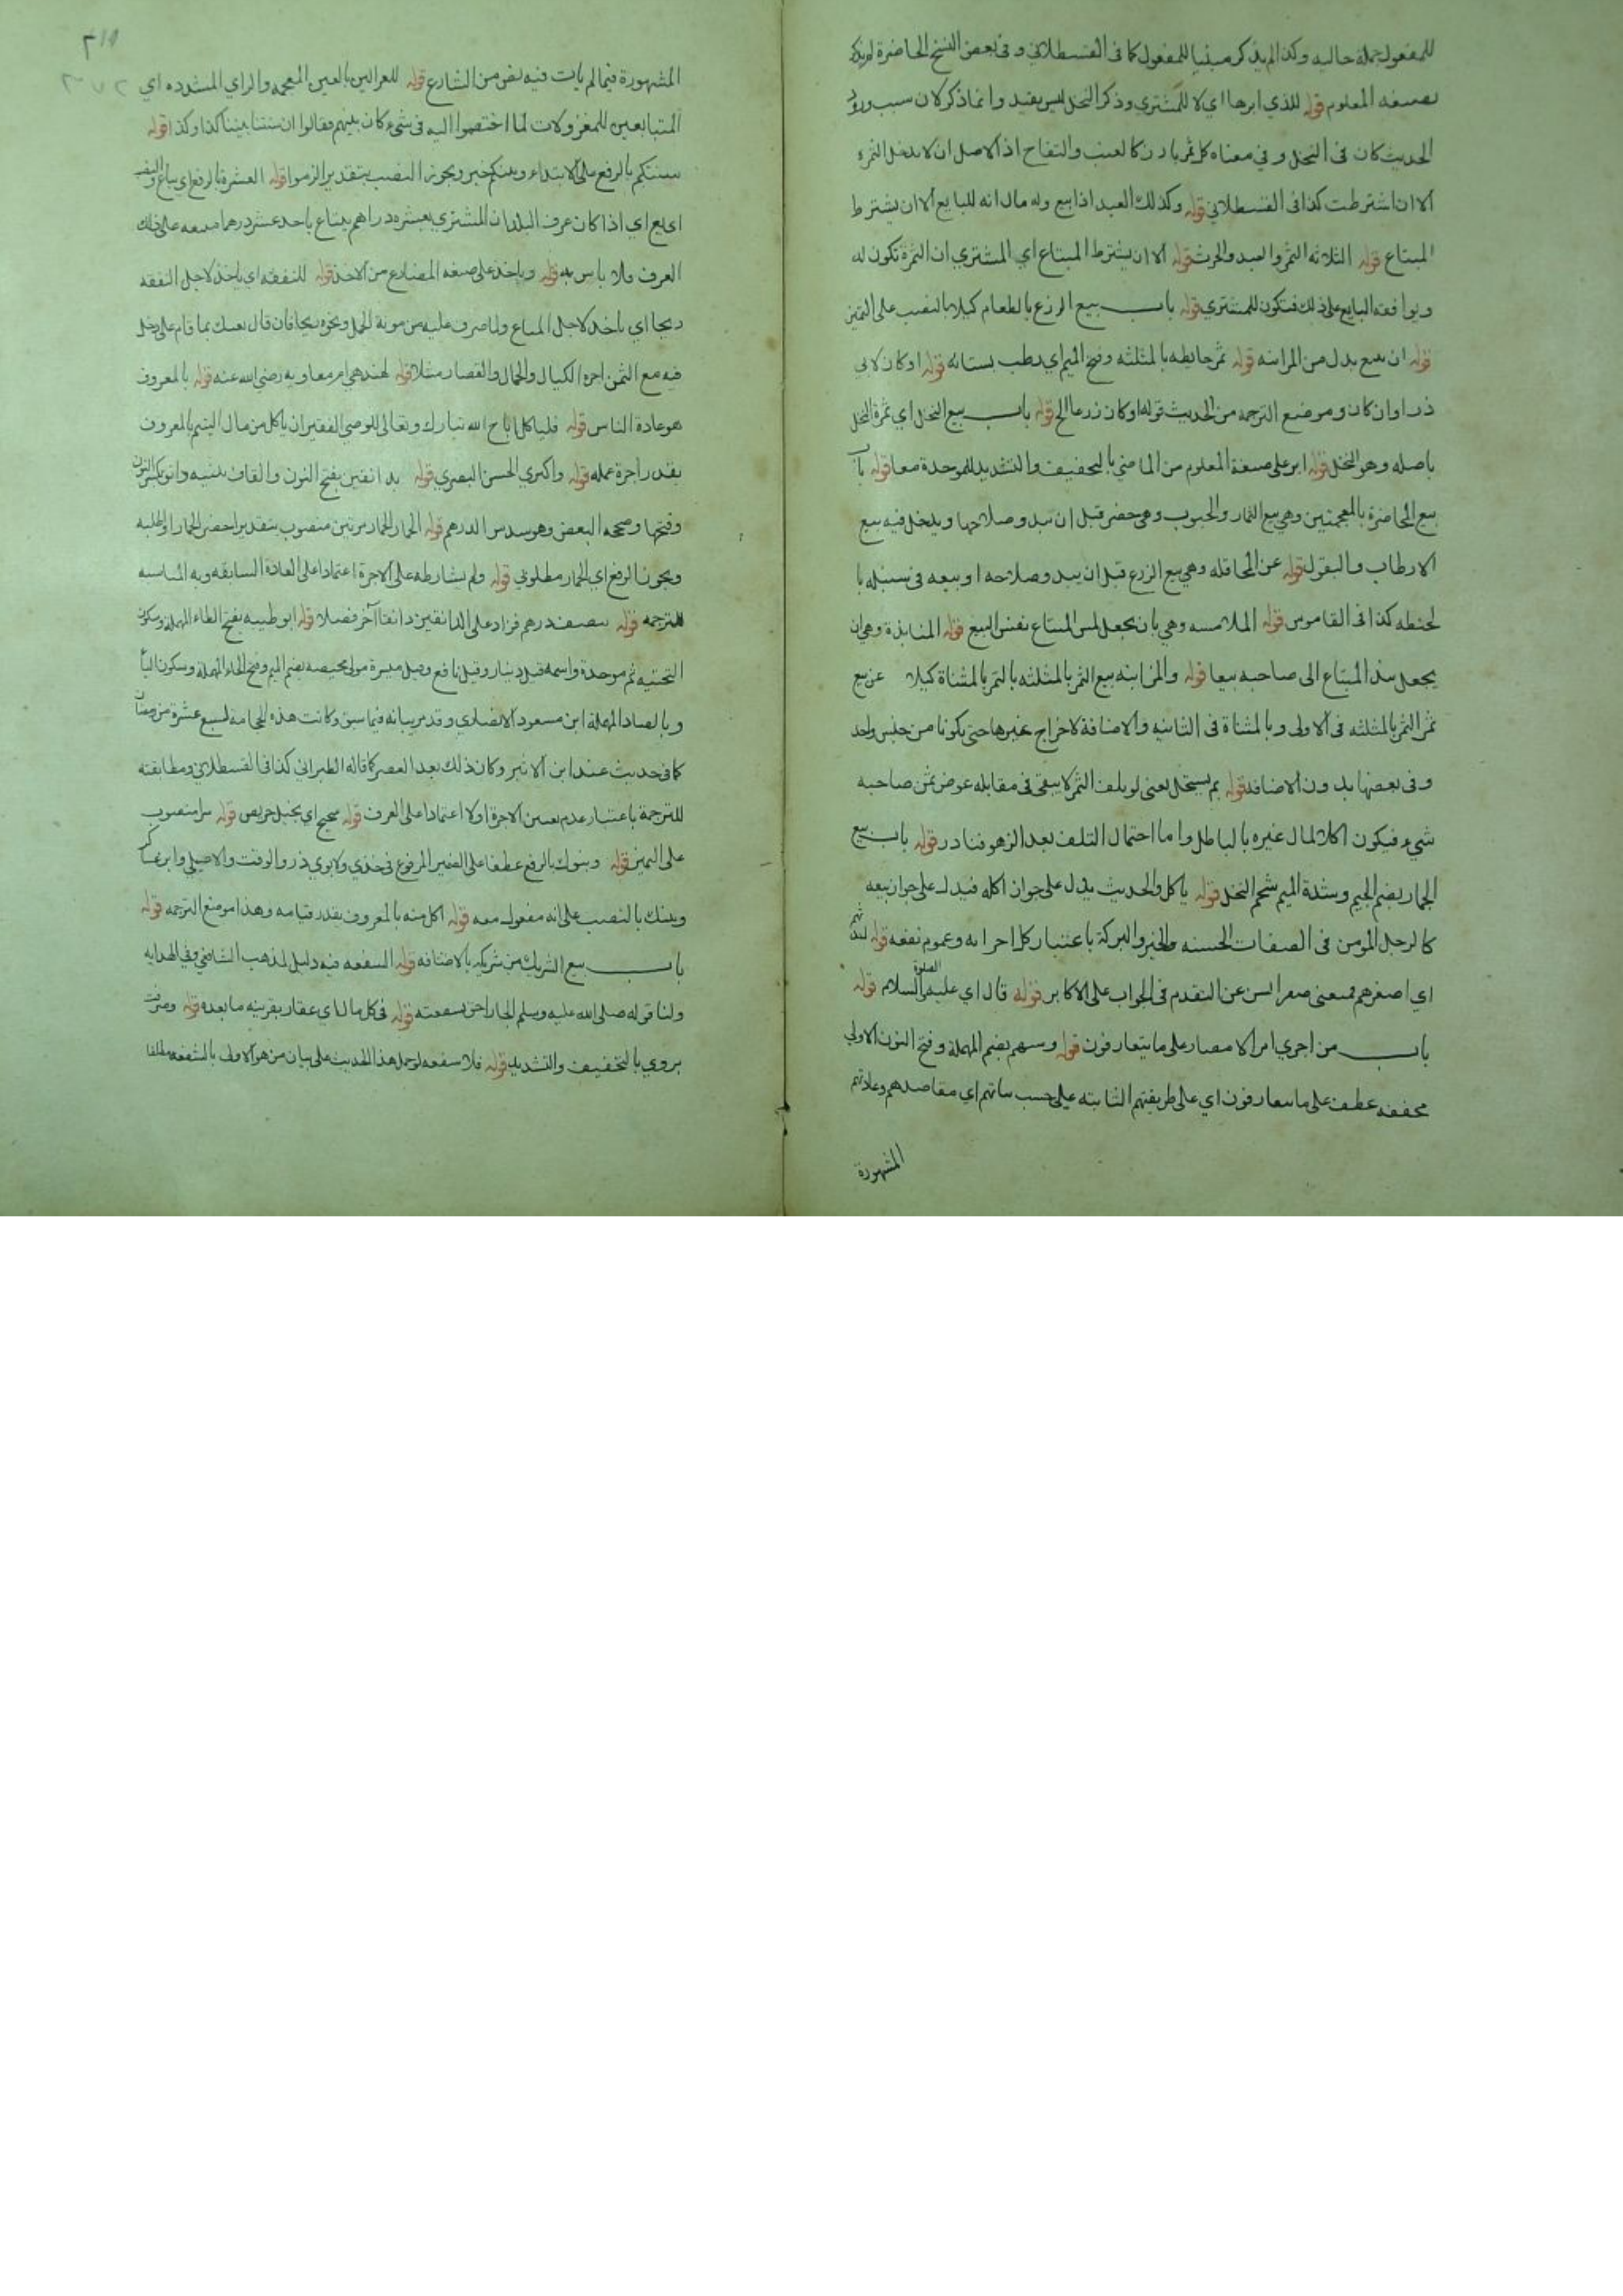 للمفعول جملة حاليه وكذا لم يذكر مبنيا للمفعول كما فى القسطلاني وفى بعض النسخ الحاضرة لم يذكر
بصيغه المعلوم قوله للذي ابرها اي لا للمشتري وذكر النخل ليس بقيد وانما ذكر لان سبب ورود
الحديث كان فى النخل وفي معناه كل ثمر بارز كالعنب والتفاح اذ الاصل ان لا يدخل الثمرة
الا ان اشترطت كذا فى القسطلاني قوله وكذلك العبد اذا بيع وله مال انه للبايع الا ان يشترط
المبتاع قوله الثلاثه الثمر والعبد والحرث قوله الا ان يشترط المبتاع اي المشتري ان الثمرة تكون له
ويوافقه البايع على ذلك فتكون للمشتري قوله باب بيع الزرع بالطعام كيلا بالنصب على التميز
قوله ان بيع بدل من المزابنه قوله ثمر حايطه بالمثلثه وفتح الميم اي رطب بستانه قوله او كان لابي
ذر وان كان وموضع الترجمه من الحديث قوله او كان زرعا الخ قوله باب بيع النخل اي ثمرة النخل
باصله وهو النخل قوله ابر على صيغة المعلوم من الماضي بالتخفيف والتشديد للموحدة معا قوله باب
بيع المخاضرة بالمعجمتين وهي بيع الثمار والحبوب وهي خضر قبل ان يبدو صلاحها ويدخل فيه بيع
الارطاب والبقول قوله عن المحاقله وهي بيع الزرع قبل ان يبدو صلاحه او بيعه فى سنبله با
لحنطه كذا فى القاموس قوله الملامسه وهي بان يجعل لمس المبتاع نفس البيع قوله المنابذة وهي ان
يجعل نبذ المبتاع الى صاحبه بيعا قوله والمزابنه بيع الثمر بالمثلثه بالتمر بالمثناة كيلا عن بيع
ثمر التمر بالمثلثه فى الاولى وبالمثناة فى الثانيه والاضافة لاخراج غيرها حتى يكونا من جنس واحد
وفى بعضها بدون الاضافه قوله بم يستحل يعنى لو تلف الثمر لا يبقى فى مقابله عوض ثمن صاحبه
شيء فيكون اكلا لمال غيره بالباطل واما احتمال التلف بعد الزهو فنادر قوله باب بيع
الجمار بضم الجيم وشدة الميم شحم النخل قوله ياكل والحديث يدل على جواز اكله فيدل على جواز بيعه
كالرجل المومن فى الصفات الحسنه والخير والبركة باعتبار كل اجزائه وعموم نفعه قوله
اي اصغرهم فمنعنى صغر السن عن التقدم فى الجواب على الاكابر قوله قال اي عليه الصلوة والسلام قوله
باب من اجري امر الامصار على ما يتعارفون قوله وسننهم بضم المهملة وفتح النون الاولي
مخففه عطف على ما يتعارفون اي على طريقتهم الثابته على حسب نياتهم اي مقاصدهم وعاداتهم
المشهورة
المشهورة فيما لم يات فيه نص من الشارع قوله للغزالين بالغين المعجمه والزاي المشدده اي
المتبايعين للمغزولات لما اختصموا اليه فى شيء كان بينهم فقالوا ان سنتنا بيننا كذا وكذا قوله
سنتكم بالرفع على الابتداء وبينكم خبر ويجوز النصب بتقدير الزموا قوله العشرة بالرفع اي يباع والنصب
اي بع اي اذا كان عرف البلد ان المشتري بعشرة دراهم يبتاع باحد عشر درهما صبغه على ذلك
العرف فلا باس به قوله وياخذ على صيغه المضارع من الاخذ قوله للنفقه اي ياخذ لاجل النفقه
ربحا اي ياخذ لاجل المتاع ولما صرف عليه من مونة الحمل ونحوه ربحا فان قال بعتك بما قام على دخل
فيه مع الثمن اجرة الكيال والحمال والقصار مثلا قوله لهند هي ام معاويه رضي الله عنه قوله بالمعروف
هو عادة الناس قوله فلياكل اباح الله تبارك وتعالى للوصي الفقير ان ياكل من مال اليتيم بالمعروف
بقدر اجرة عمله قوله واكتري الحسن البصري قوله بدانقين بفتح النون والقاف تثنيه دانق بكسر النون
وفتحها وصححه البعض وهو سدس الدرهم قوله الحمار الحمار مرتين منصوب بتقدير احضر الحمار او اطلبه
ويجوز الرفع اي الحمار مطلوبي قوله ولم يشارطه على الاجرة اعتمادا على العادة السابقه وبه المناسبه
للترجمه قوله بنصف درهم فزاد على الدانقين دانقا آخر فضلا قوله ابو طيبه بفتح الطاء المهملة وسكون
التحتيه ثم موحدة واسمه قيل دينار وقيل نافع وقيل ميسرة مولى محيصه بضم الميم وفتح الحاء المهملة وسكون الياء
وبالصاد المهملة ابن مسعود الانصاري وقد مر بيانه فيما سبق وكانت هذه الحجامة لسبع عشرة من رمضان
كما فى حديث عند ابن الاثير وكان ذلك بعد العصر كما قاله الطبراني كذا فى القسطلاني ومطابقته
للترجمة باعتبار عدم تعيين الاجرة اولا اعتمادا على العرف قوله شحيح اي بخيل حريص قوله سرا منصوب
على التميز قوله وبنوك بالرفع عطفا على الضمير المرفوع فى خذي ولابوي ذر والوقت والاصيلي وابن عساكر
وبنيك بالنصب على انه مفعول معه قوله اكل منه بالمعروف بقدر قيامه وهذا موضع الترجمه قوله
باب بيع الشريك من شريكه بالاضافه قوله الشفعه فيه دليل لمذهب الشافعي وفي الهدايه
ولنا قوله صلى الله عليه وسلم الجار احق بشفعته قوله فى كل مال اي عقار بقرينه ما بعده قوله وصرفت
يروي بالتخفيف والتشديد قوله فلا شفعه لو حمل هذا الحديث على بيان من هو الاولى بالشفعه مطلقا